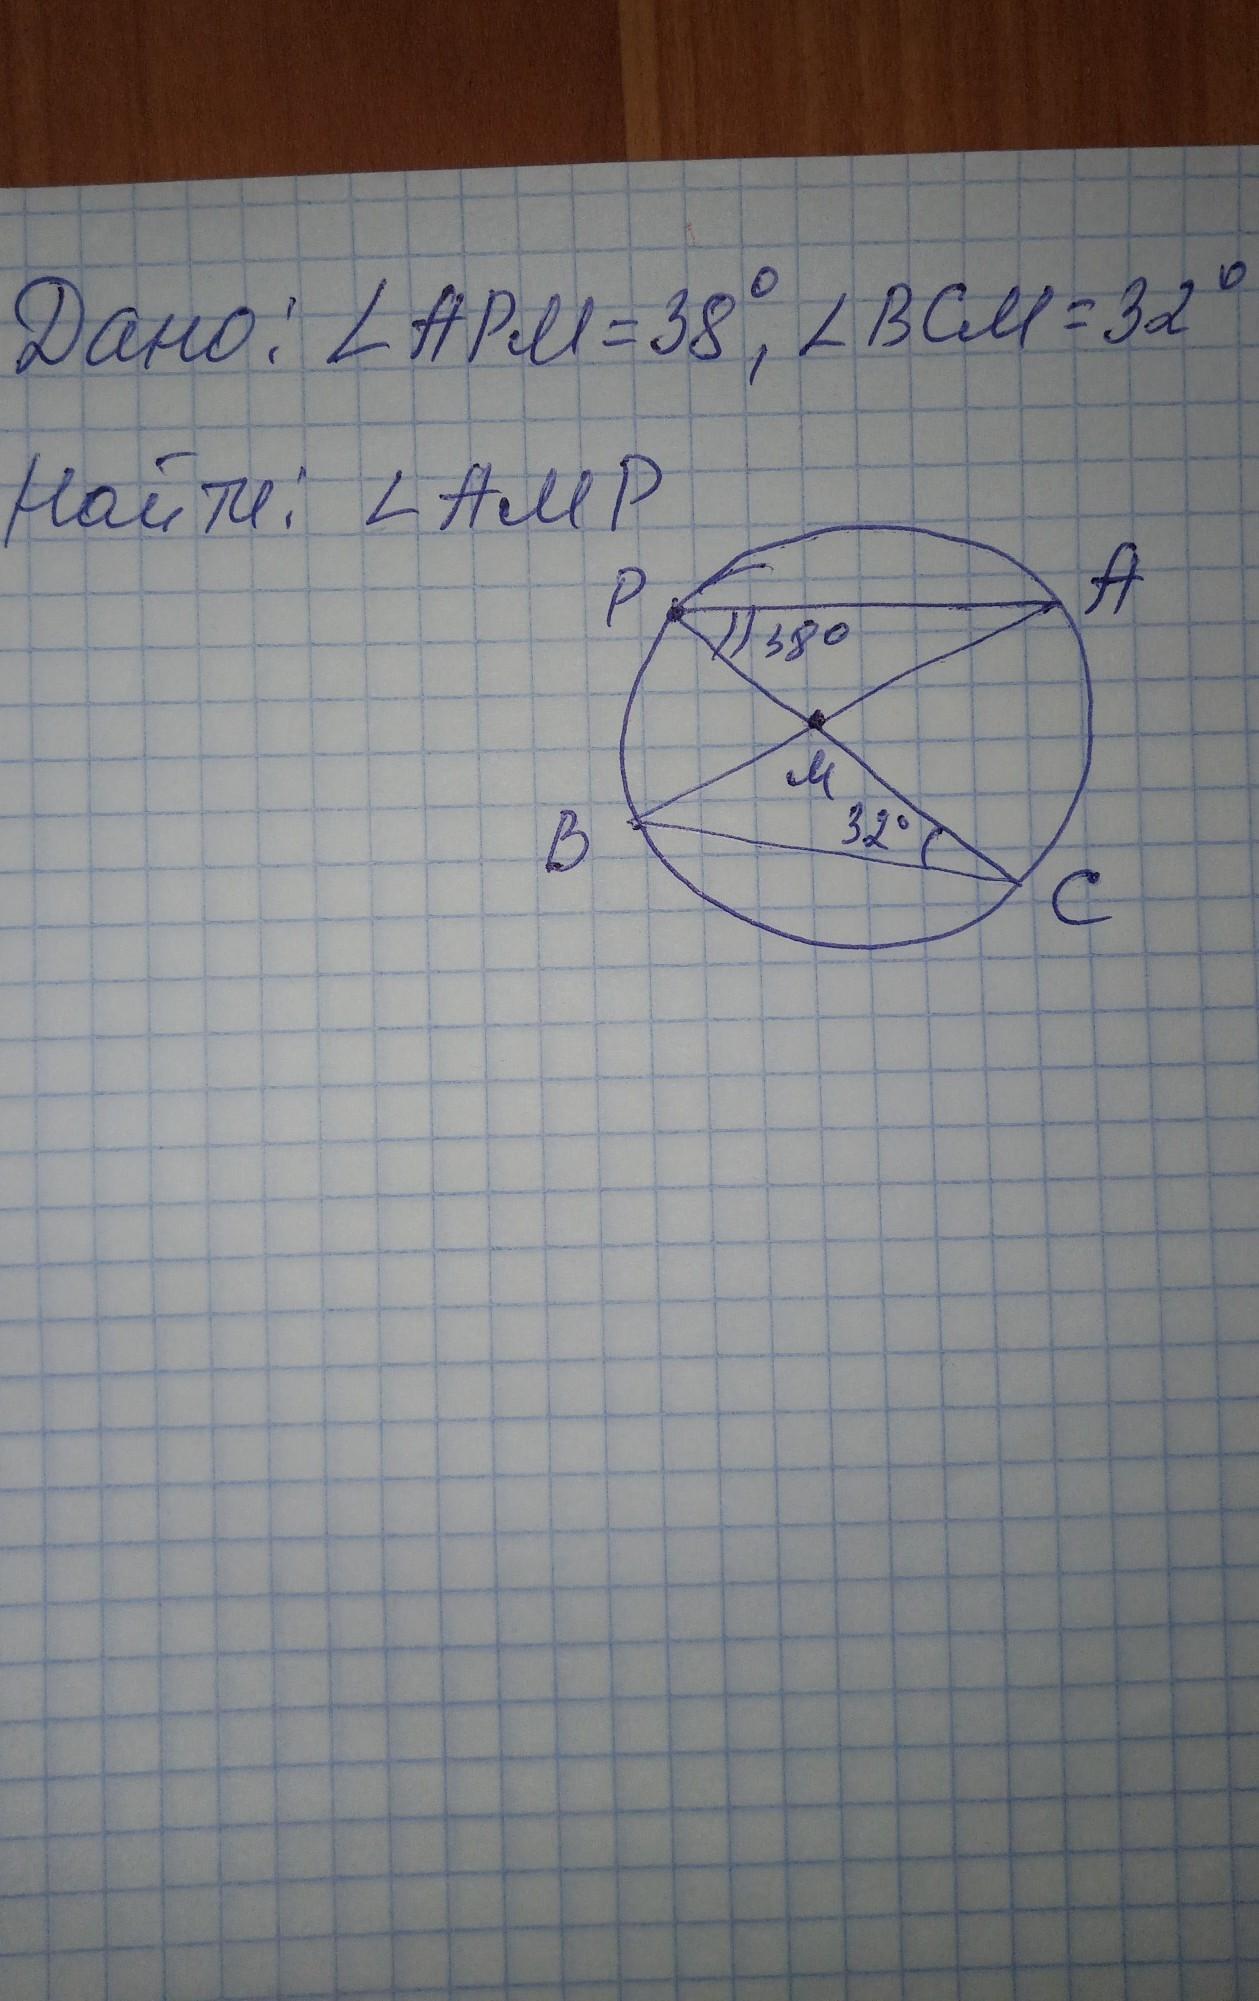 Дано: ∠APM=38°, ∠BCM=32°
Найти: ∠AMP
P
A
38°
M
32°
B
C